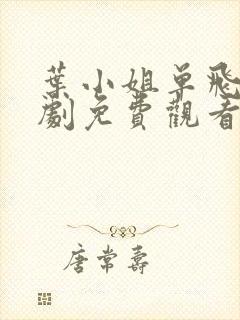 葉小姐單飛
劇免費觀看
唐常壽